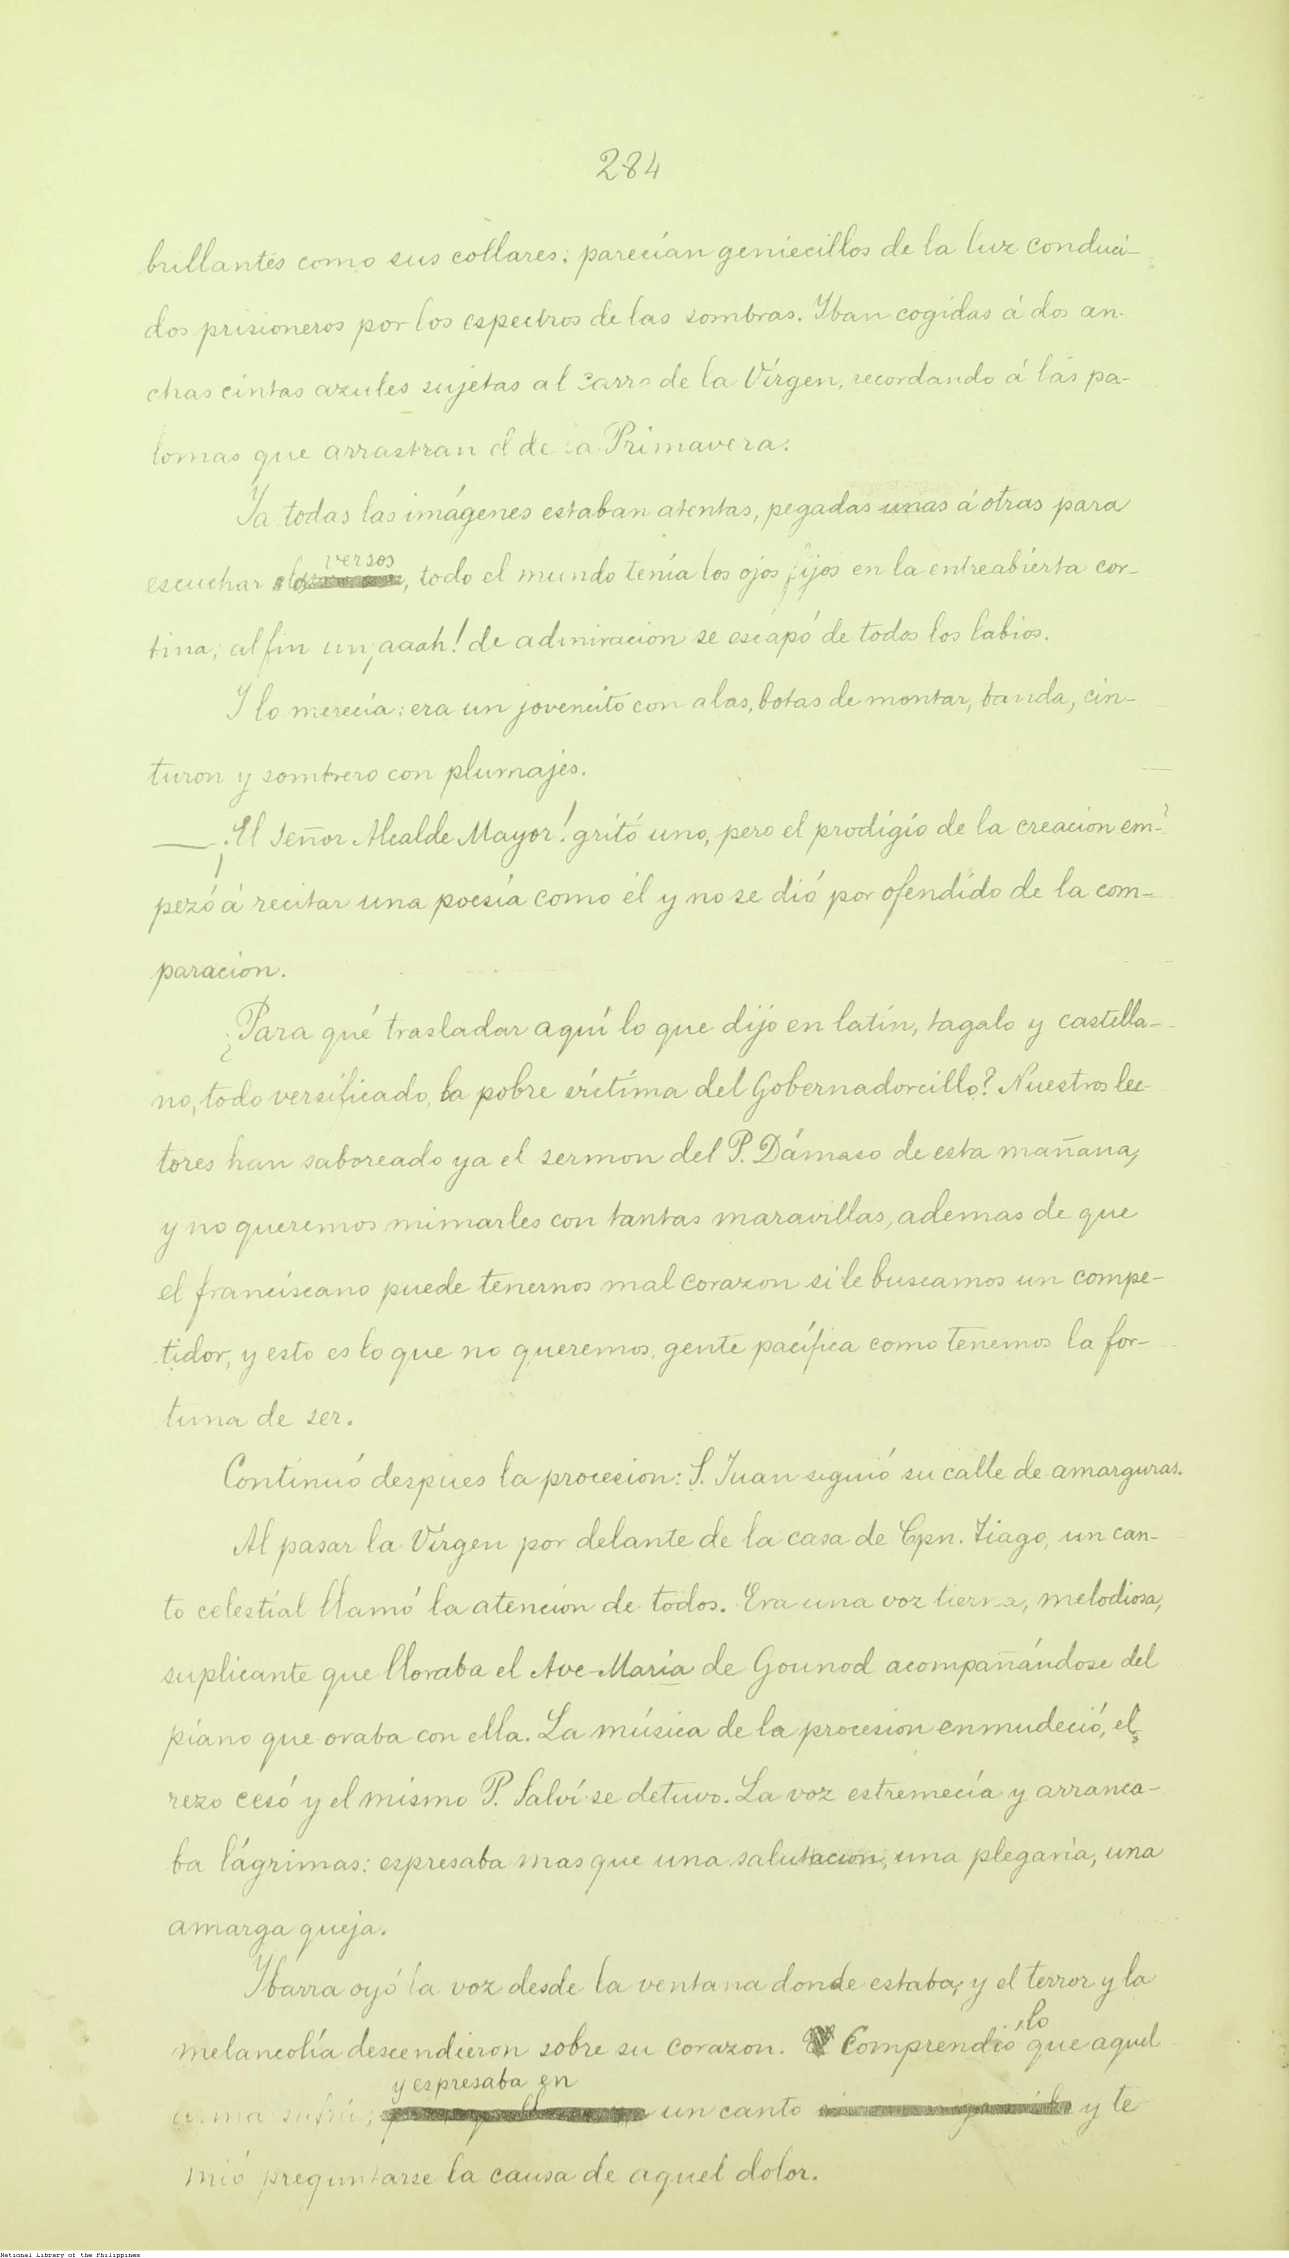 284
brillantes como sus collares: parecían geniecillos de la luz conduci-
dos prisioneros por los espectros de las sombras. Iban cogidas á dos an-
chas cintas azules sujetas al carro de la Vírgen, recordando á las pa-
lomas que arrastran el de la Primavera.
Ya todas las imágenes estaban atentas, pegadas unas á otras para
versos
escuchar los, todo el mundo tenía los ojos fijos en la entreabierta cor-
tina; al fin un ¡aaah! de admiracion se escapó de todos los labios.
Y lo merecía: era un jovencito con alas, botas de montar, banda, cin-
turon y sombrero con plumajes.
—¡El Señor Alcalde Mayor! gritó uno, pero el prodigio de la creacion em-
pezó á recitar una poesía como él y no se dió por ofendido de la com-
paracion.
¿Para qué trasladar aquí lo que dijo en latin, tagalo y castella-
no, todo versificado, la pobre víctima del Gobernadorcillo? Nuestros lec-
tores han saboreado ya el sermon del P. Dámaso de esta mañana,
y no queremos mimarles con tantas maravillas, ademas de que
el franciscano puede tenernos mal corazon si le buscamos un compe-
tidor, y esto es lo que no queremos, gente pacífica como tenemos la for-
tuna de ser.
Continuó despues la procesion: S. Juan siguió su calle de amarguras.
Al pasar la Vírgen por delante de la casa de Cpn. Tiago, un can-
to celestial llamó la atencion de todos. Era una voz tierna, melodiosa,
suplicante que lloraba el Ave-María de Gounod acompañándose del
piano que oraba con ella. La música de la procesion enmudeció, el
rezo cesó y el mismo P. Salví se detuvo. La voz estremecía y arranca-
ba lágrimas: espresaba mas que una salutacion, una plegaria, una
amarga queja.
Ibarra oyó la voz desde la ventana donde estaba, y el terror y la
melancolía descendieron sobre su corazon. Comprendió lo que aquel
y espresaba en
alma sufría; un canto y te
mió preguntarse la causa de aquel dolor.
National Library of the Philippines